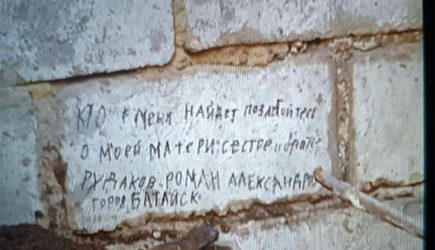 КТО меня НАЙДЕТ позаботьтесь
о моей МАТЕРИ: сестре и брате
РУДАКОВ РОМАН АЛЕКСАНДР
город БАТАЙСК.